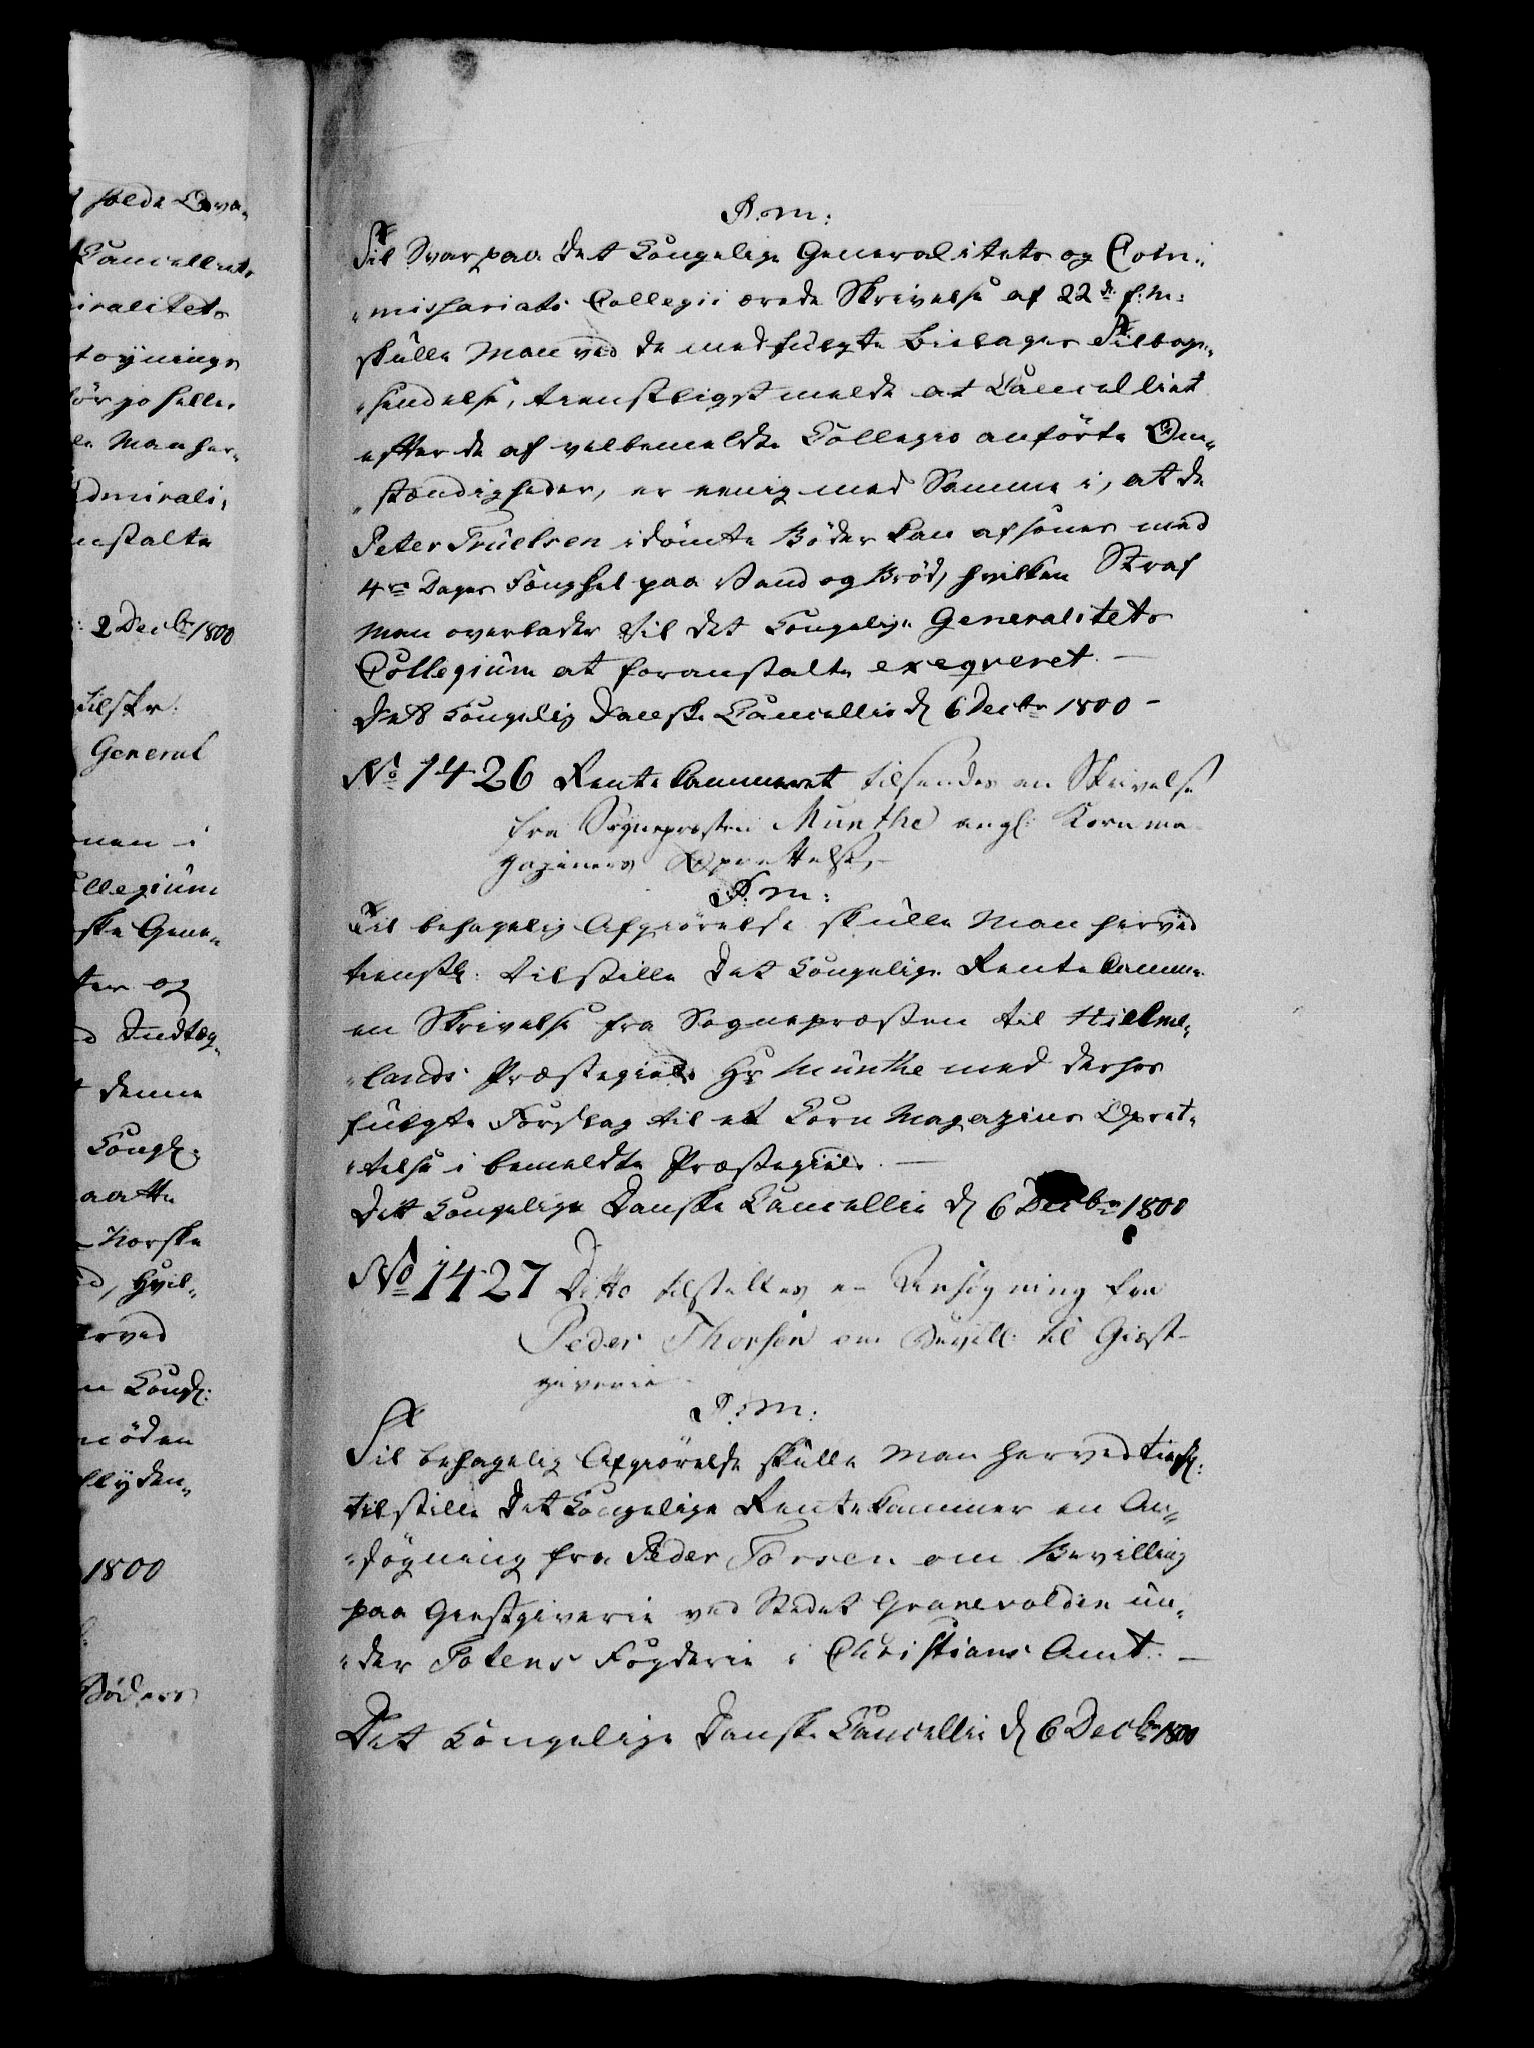 holde Qva-
Cancelliets
iralitets
tøynings
før jo heller
le Man her-
dmirali-
nstalte
2 Decbr 1800
tilskr:
General
nen i
llegium
ske Gene-
ter og
d Indtæg-
t denne
Kongl:
aatte
Norske
d, hvil-
erved
en Kongl:
møden
llyden-
1800
Bøders
P. M:
Til Svar paa Det Kongelige Generalitets og Com-
-missariats Collegii ærede Skrivelse af 22de f: M:
skulle Man ved de medfulgte Bilages Tilbage-
-sendelse, tienstligst melde at Cancelliet
efter de af velbemeldte Collegio anførte Om-
-stændigheder, er eenig med Samme i, at de
Peter Truelsen idømte Bøder kan afsones med
4re Dages Fængsel paa Vand og Brød, hvilken Straf
Man overlader til Det Kongelige Generalitets
Collegium at foranstalte exeqveret. —
Det Kongelig Danske Cancellie d 6 Decbr 1800 -
No 1426 Rentekammeret tilsendes en Skrivelse
fra Sognepræsten Munthe angl: Kornma-
gaziners Oprettelse, -
P: M:
Til behagelig Afgiørelse skulle Man herved
tienstl: tilstille Det Kongelige Rentekammer
en Skrivelse fra Sognepræsten til Hielme-
-lands Præstegield Hr Munthe med derhos
fulgte Forslag til et Korn Magazins Opret-
-telse i bemeldte Præstegield. —
Det Kongelige Danske Cancellie d 6 Decbr 1800
No 1427 Ditto tilstilles en Ansøgning fra
Peder Thorsen om Bevill: til Giæst-
giverie.
P: M:
Til behagelig Afgiørelse skulle Man herved tienstl:
tilstille Det Kongelige Rentekammer en An-
-søgning fra Peder Torsen om Bevilling
paa Giestgiverie ved Stedet Granevolden un-
-der Totens Fogderie i Christians Amt. —
Det Kongelige Danske Cancellie d 6 Decbr 1800